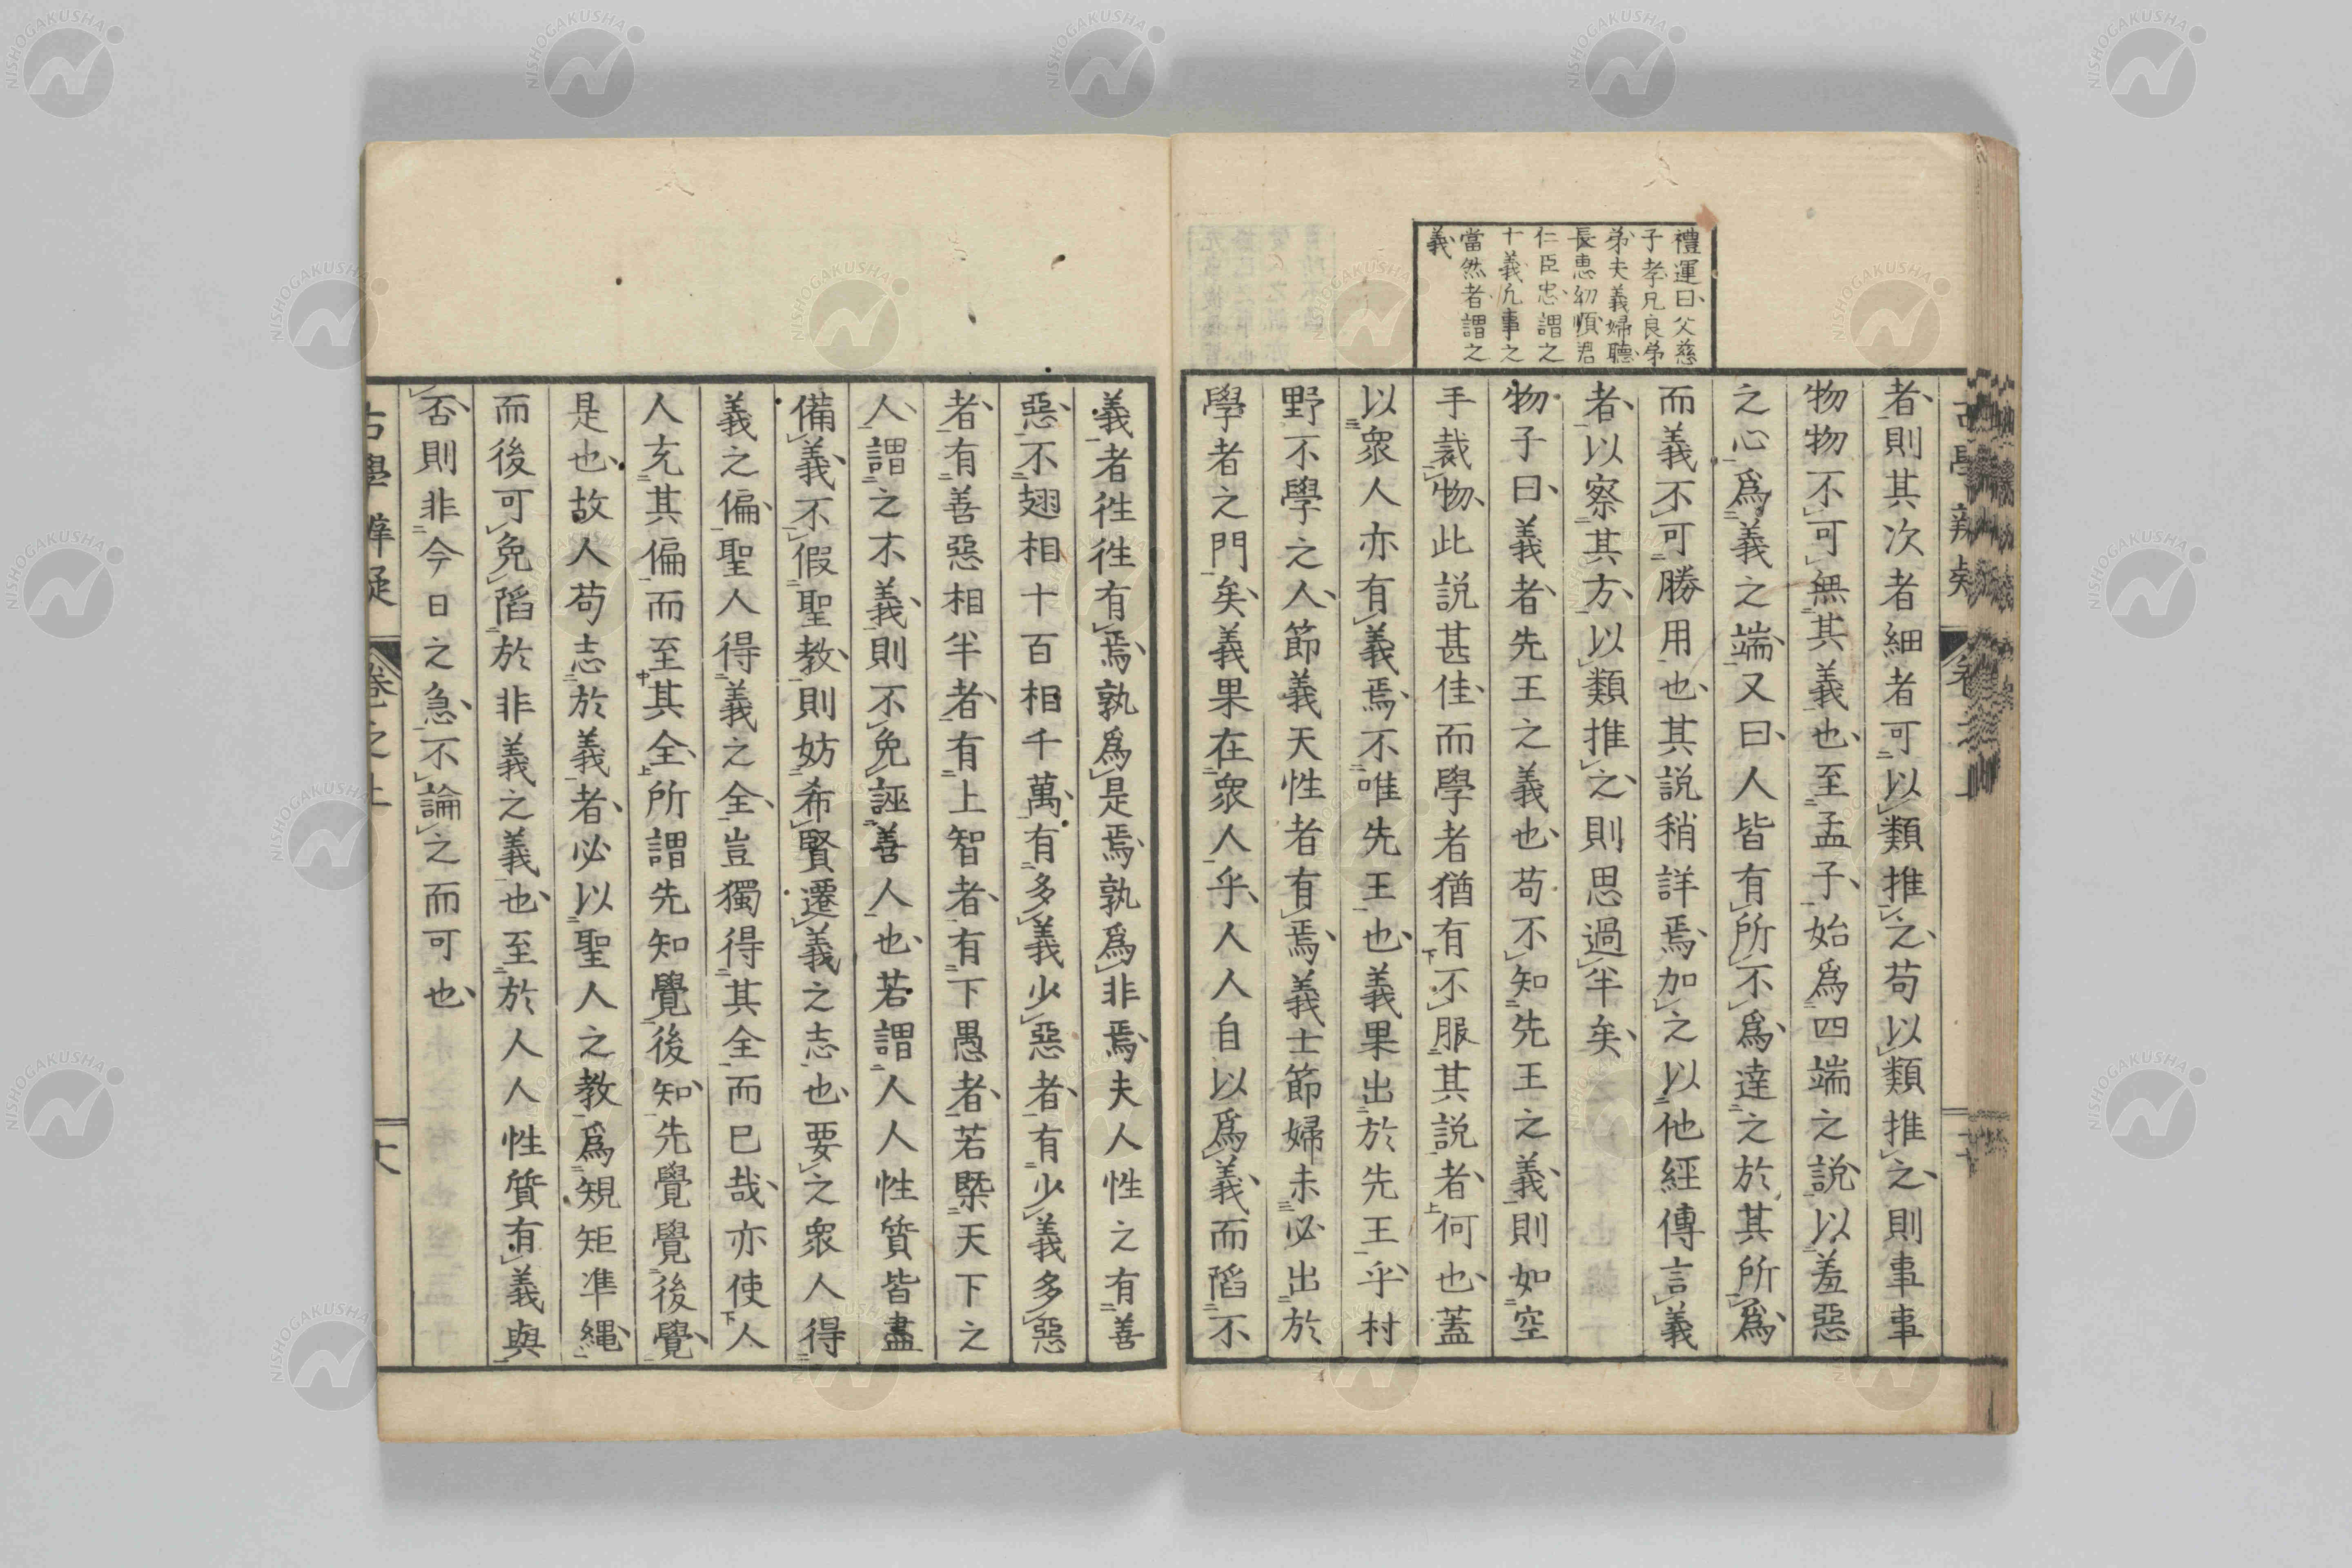 禮運曰父慈
子孝兄良弟
弟夫義婦聽
長惠幼順君
仁臣忠謂之
十義凢事之
當然者謂之
義
者則其次者細者可以類推之苟以類推之則事事
物物不可無其義也至孟子始爲四端之說以羞惡
之心爲義之端又曰人皆有所不爲達之於其所爲
而義不可勝用也其説稍詳焉加之以他經傳言義
者以察其方以類推之則思過半矣
物子曰義者先王之義也苟不知先王之義則如空
手裁物此説甚佳而學者猶有不服其説者何也蓋
以衆人亦有義焉不唯先王也義果出於先王乎村
野不學之人節義天性者有焉義士節婦未必出於
學者之門矣義果在衆人乎人人自以爲義而陷不
義者徃徃有焉孰爲是焉孰爲非焉夫人性之有善
惡不翅相十百相千萬有多義少惡者有少義多惡
者有善惡相半者有上智者有下愚者若槩天下之
人謂之不義則不免誣善人也若謂人人性質皆盡
備義不假聖教則妨希賢遷義之志也要之衆人得
義之偏聖人得義之全豈獨得其全而已哉亦使人
人充其偏而至其全所謂先知覺後知先覺覺後覺
是也故人苟志於義者必以聖人之教爲規矩準繩
而後可免陷於非義之義也至於人人性質有義與
否則非今日之急不論之而可也
古學辨疑
卷之上